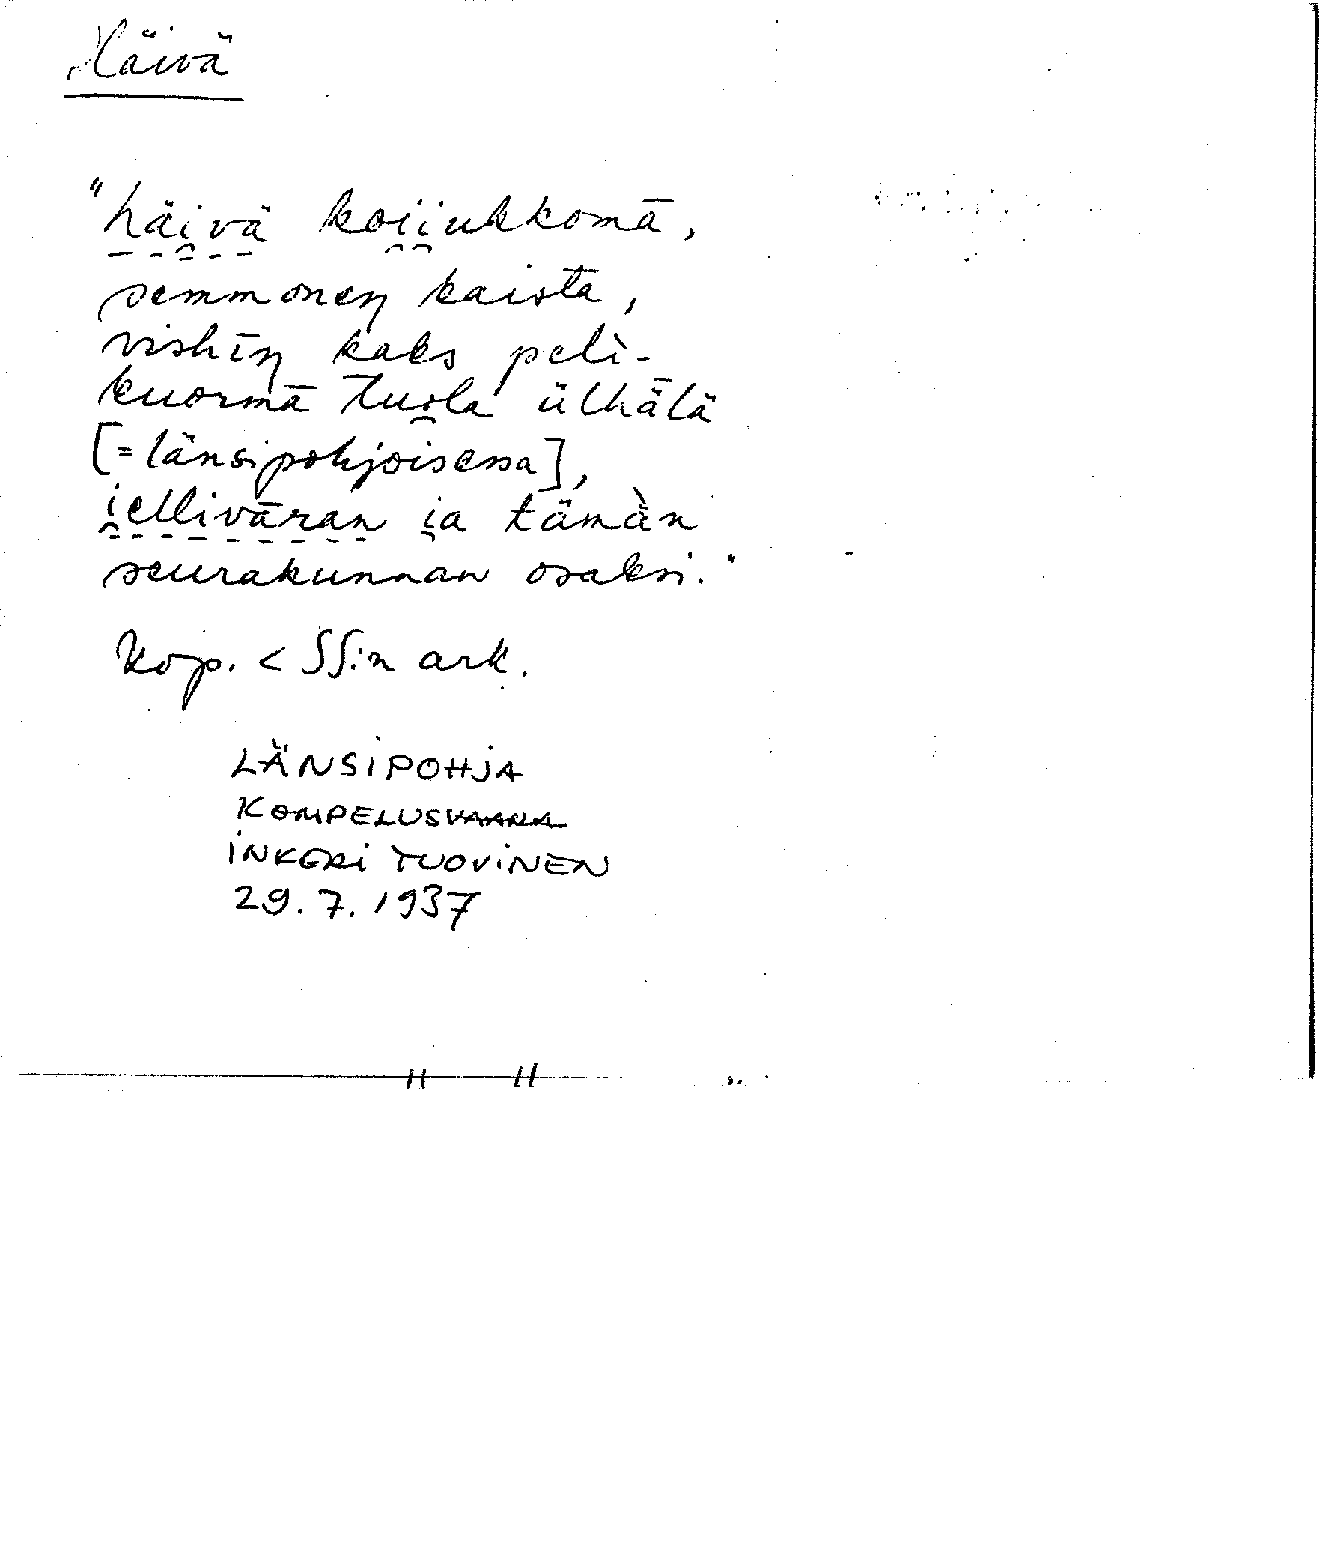 Häivä
"häi̯vä koi̯i̯ukkomā,
semmoneŋ kaista,
vishīŋ kaks peli-
kuormā tuo̯la ülhǟlä
[=länsipohjoisessa],
i̯ellivāran i̯a tämän
seurakunnan osaksi."
Kop. < SS:n ark.
LÄNSIPOHJA
KOMPELUSVAARA
INKERI TUOVINEN
29.7.1937